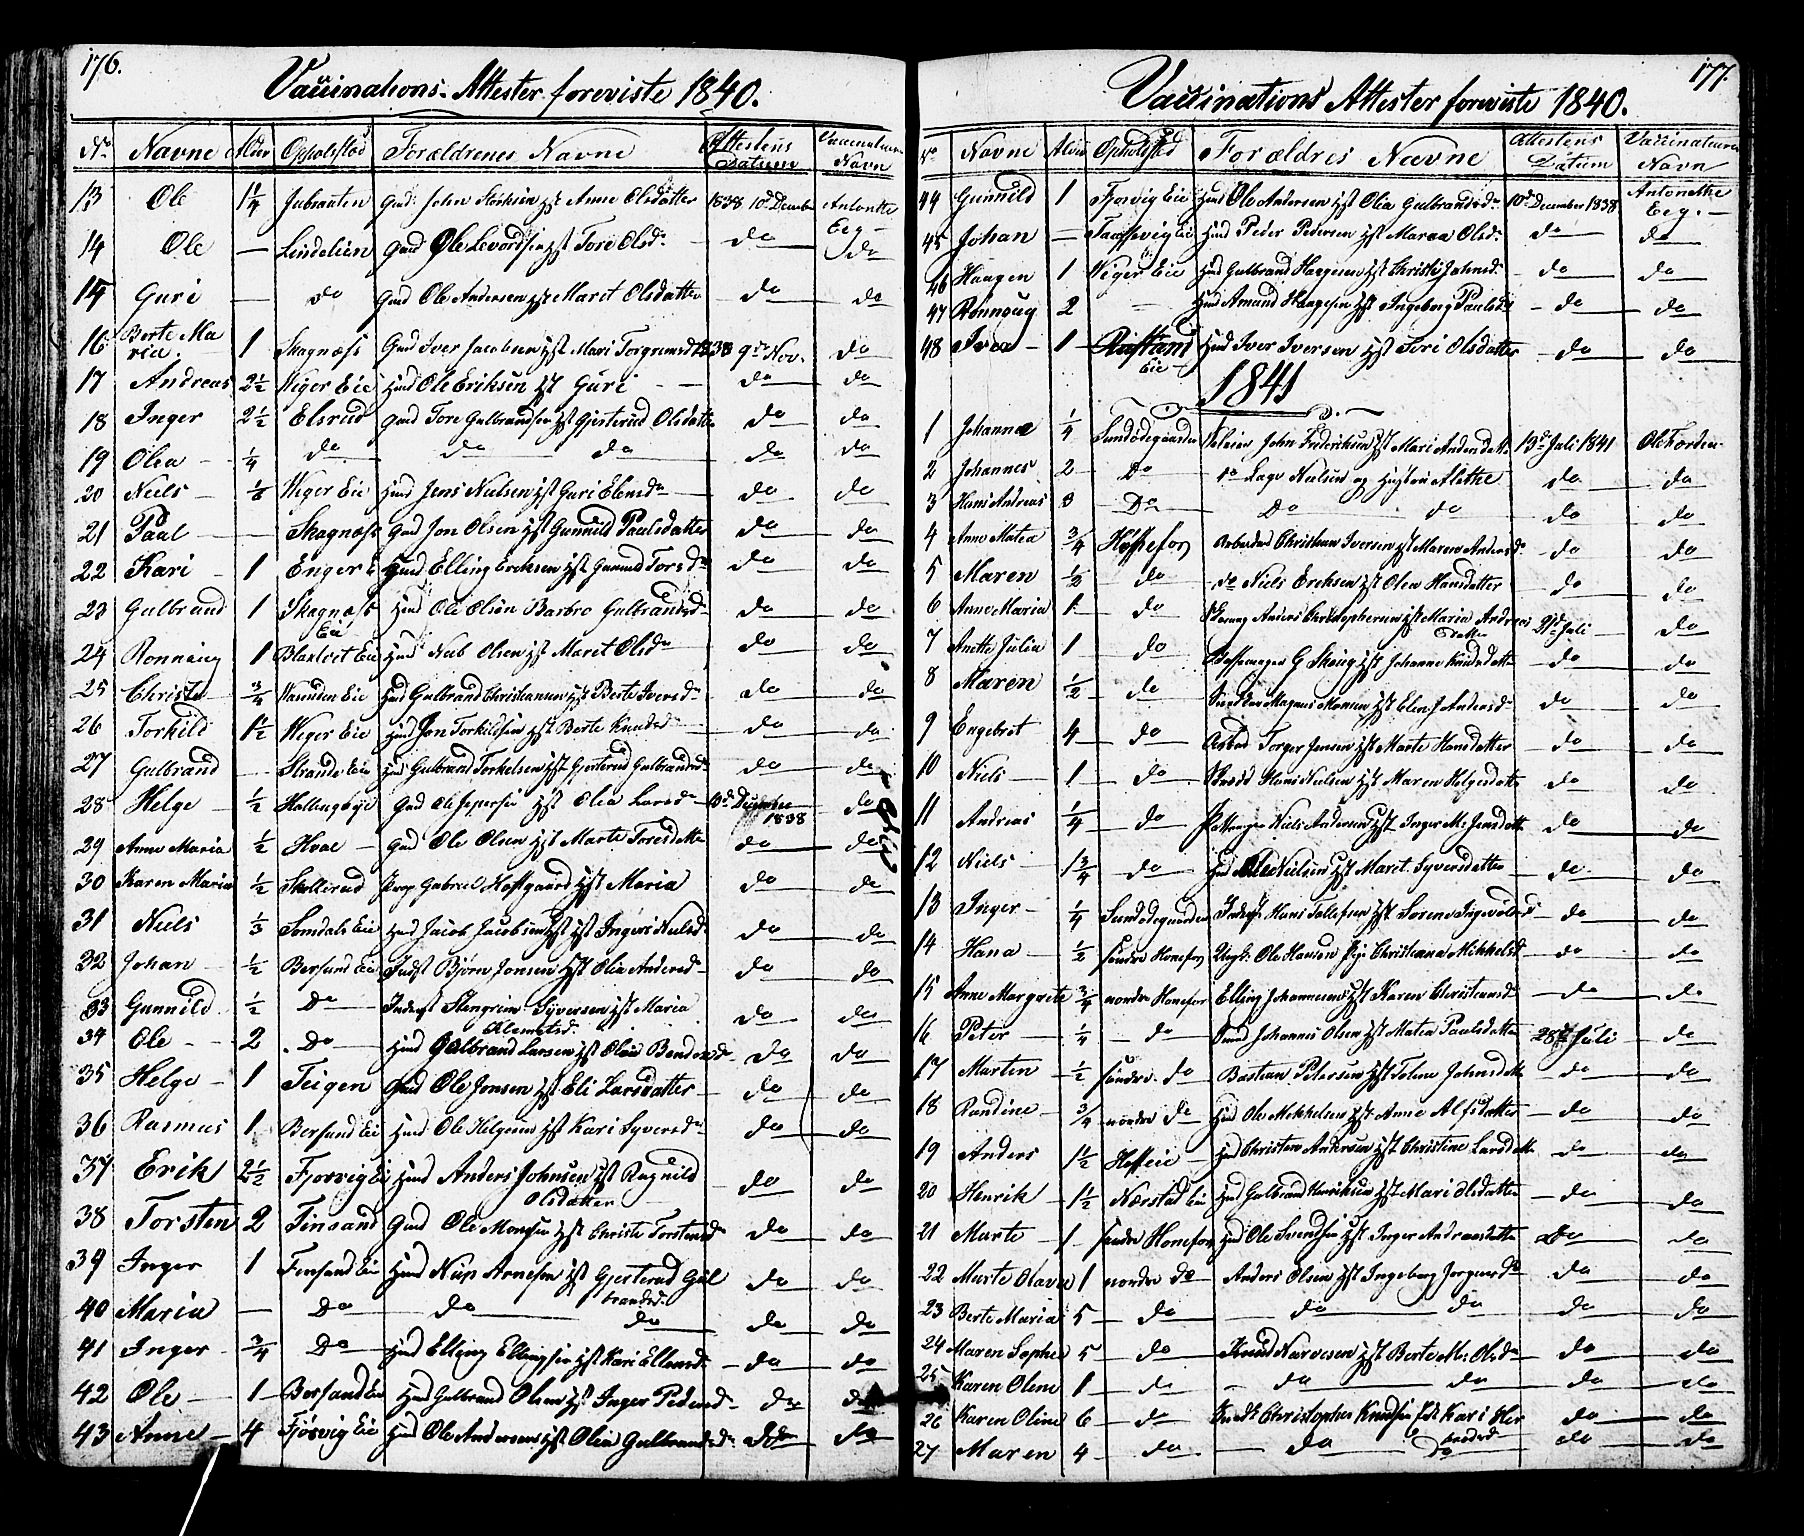 176.
Vaccinations-Attester foreviste 1840.
No Navne Alder Opholsted Forældrenes Navne Attestens Datum Vaccinateurens Navn
13 Ole 1/4 Gmd: John Anne Olsdatter 1838 10de December Antonette Eeg
14 Ole — Lindelien Gmd Ole Levordsen Hst Tore Olsdr do do
15 Guri — do Gmd Ole Andersen Hst Maret Olsdatter do do
16 Berte Maria 1 Skagnæss Gmd Iver Jacobsen Hst Mari Torgrimsd 1838 9de Nov. do
17 Andreas 2 1/2 Weger Eie Hmd Ole Eriksen Hst Guri — do do
18 Inger 2 1/2 Elsrud Gmd Tore Gulbrandsen Hst Gjertrud Olsdatter do do
19 Olea 1/4 do do do do do
20 Niels 1/2 Weger Eie Hmd Jens Nielsen Hst Guri do do
21 Paal — Skagnæss Gmd Jon Olsen Hst Gunnild Paulsdatter do do
22 Kari 1 Enger E Hmd Elling Ericksen Hst Gunnild Torsdr do do
23 Gulbrand 1 Skagnæss Eie Hmd Ole Olsen Barbro Gulbrandsd do do
24 Ronnaug 1 Eie Hmd Olsen Hst Maret Olsdr do do
25 Christe 3/4 Eie Hmd Gulbrand Christiansen Hst Berte Iversdr do do
26 Torkild 1 1/2 Weger Eie Hmd Jon Torkildsen Hst Berte Knudsdr do do
27 Gulbrand — Strande Eie Hmd Gulbrand Torkelsen Hst Gjertrud Gulbrandsdr do do
28 Helge 1/2 Hallingbye Gmd Ole Jepersen Hst Olia Larsdr 10de December 1838 do
29 Anne Maria 1/2 Hvae Gmd Ole Olsen Hst Marte Toresdatter do do
30 Karen Maria 1/2 Skollerud Gabriel Hofsgaard Hst Maria do do
31 Niels 1/3 Somdals Eie Hmd Jacob Jacobsen Hst Ingeri Nielsd do do
32 Johan 1/2 Bersund Eie Indst Bjørn Jonsen Hst Olia Andersdr do do
33 Gunnild 1/2 Do Inderst Stengrim Syversen Hst Maria Klemetsd. do do
34 Ole 2 Do Hmd Gulbrand Larsen Hst Olia do do
35 Helge 1 Teigen Gmd Ole Jonsen Hst Eli Larsdatter do do
36 Rasmus 1 Bersund Eie Hmd Ole Helgesen Hst Kari Syversdr do do
37 Erik 2 1/2 Fjorvig Ei Hmd Anders Johnsen Hst Ragnild Olsdatter do do
38 Torsten 2 Finsand Gmd Ole Monsen Hst Christe Torstensdr do do
39 Inger 1 Finsand Eie Hmd Arnesen Hst Gjertrud Gulbrandsd. do do
40 Maria — Do do do do do
41 Inger 3/4 Do Hmd Elling Ellingsen Hst Kari Ellensdr do do
42 Ole 1 Bersand Eie Hmd Gulbrand Olsen Hst Inger Pedersdr do do
43 Anne 4 Fjørvig Eie Hmd Ole Andersen Hst Olia Gulbrandsdr do do
177.
Vaccinations Attester foreviste 1840.
No Navne Alder Opholsted Forældres Navne Attestens Datum Vaccinateurens Navn
44 Gunnild 1 Fjorvig Eie Hmd Ole Andersen Hst Olia Gulbrandsdr 10de December 1838 Antonette Eeg.
45 Johan — Eie Hmd Peder Pedersen Hst Maren Olsdr do do
46 Haagen 1 Weger Eie Hmd Gulbrand Haagesen Hst Christi Johnsdr do do
47 Rønnoug 2 — Hmd Amund Haagesen Hst Ingeborg Paulsdr do do
48 Iver 1 Eie Hmd Iver Iversen Hst Tori Olsdatter do do
1841
1 Johanne 1/4 Sundødegaarden John Frederiksen Hst Mari Andersdatter 13de Juli 1841 Ole Torsten
2 Johannes 2 Do do Lage Nielsen og Hustru Alethe do do
3 Hans Andreas 8 Do Do do do do
4 Anne Matea 3/4 Høffsfos Arbeider Christian Iversen Hst Maren Andersdr do do
5 Maren 1/2 do do Niels Ericksen Hst Olea Hansdatter do do
6 Anne Maria 1 do Anders Christophersen Hst Maria Andreasdatter 21de Juli do
7 Anette Julia 1 do G Skoug Hst Johanne Knudsdatter do do
8 Maren 1/2 do Magnus Monsen Hst Elen J Andersdr do do
9 Engebret 4 do Arbeid Torger Jensen Hst Marte Hansdatter do do
10 Niels 1 do Hans Nielsen Hst Maren Helgesdatter do do
11 Andreas 1/4 do Niels Andersen Hst Inger M. Jensdatter do do
12 Niels 1 3/4 do Hmd Ole Nielsen Hst Maret Syversdatter do do
13 Inger 1/4 Sundødegaarden Inderst Hans Tollefsen Hst Sorene Ingevoldsd do do
14 Hana 1/2 søndre Honefos Ungk. Ole Hansen Pige Christiana Mikkelsd do do
15 Anne Margrete 3/4 nordre Honefos Elling Johannesen Hst Karen Christensdr do do
16 Peter 1/4 do Johannes Olsen Hst Matea Paulsdatter 28de Juli do
17 Marten 1/2 søndre do Bastian Petersen Hst Toline Johnsdatter do do
18 Randine 3/4 nordre do Hmd Ole Mikkelsen Hst Anne Alfsdatter do do
19 Anders 1 1/2 Hoffeie Hmd Christen Andersen Hst Christine Larsdatter do do
20 Henrik 1 1/2 Nærstad Eie Hmd Gulbrand Henriksen Hst Mari Olsdatter do do
21 Marte 1 søndre Honefos Hmd Ole Svendsen Hst Inger Andreasdatter do do
22 Marte Olava 1 nordre do Anders Olsen Hst Ingeborg Jorgensdr do do
23 Berte Maria 5 do do do do do
24 Maren Sophie 5 do Knud Narvesen Hst Berte M. Olsdr do do
25 Karen Olene 1 do do do do do
26 Karen Oline 6 do Christopher Knudsen Hst Kari Herbrandsd do do
27 Maren 4 do do Do do do